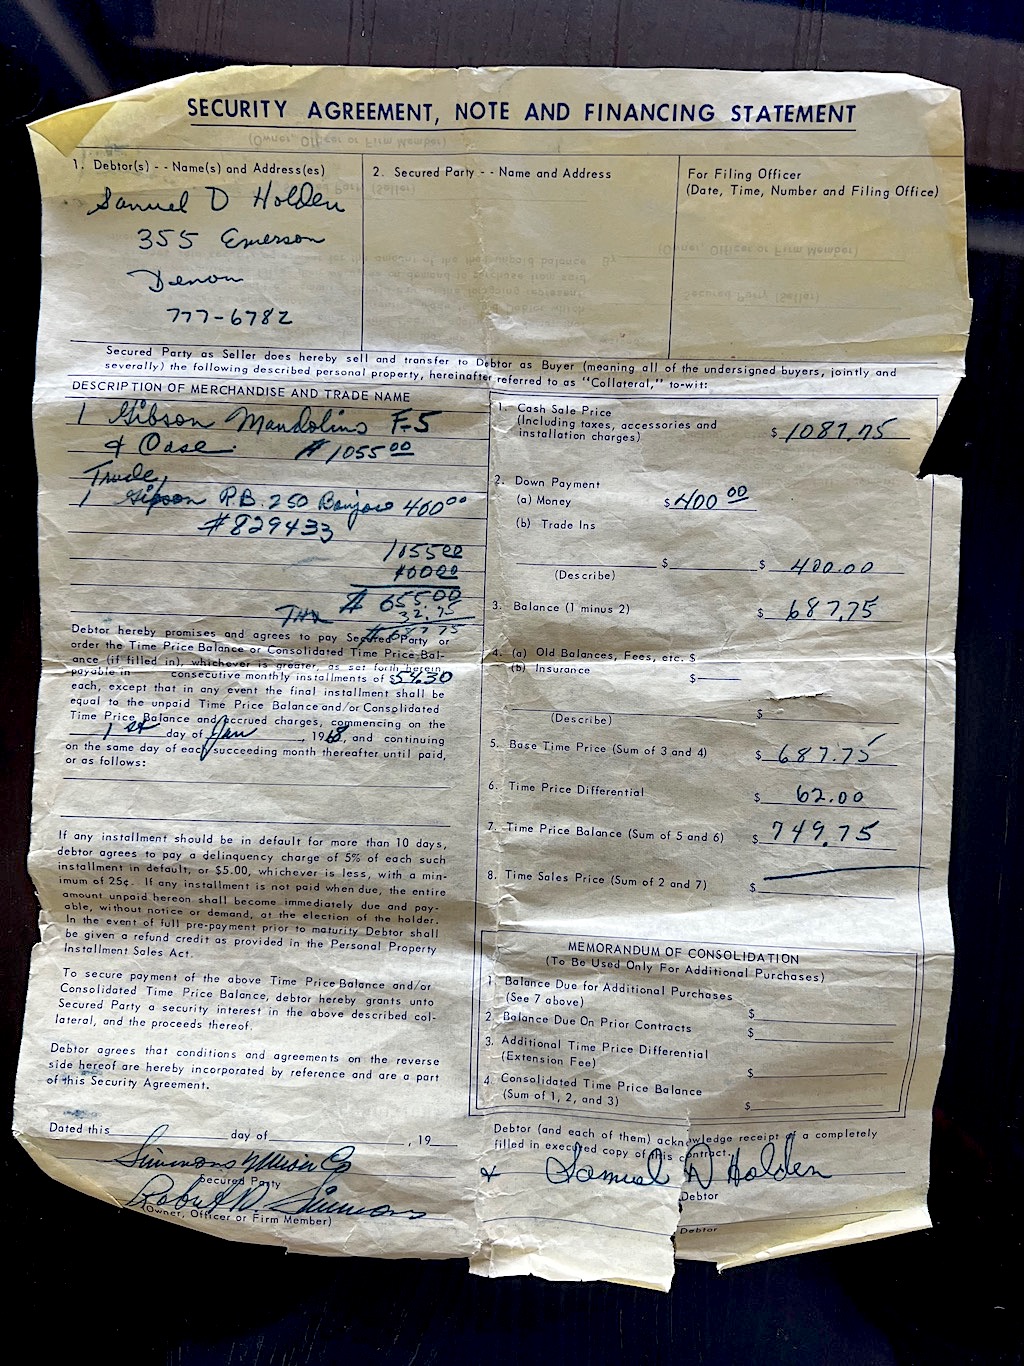 SECURITY AGREEMENT, NOTE AND FINANCING STATEMENT
1. Debtor(s) - - Name(s) and Address(es)
Samuel D Holden
355 Emerson
777-6782
2. Secured Party - - Name and Address
For Filing Officer
(Date, Time, Number and Filing Office)
Secured Party as Seller does hereby sell and transfer to Debtor as Buyer (meaning all of the undersigned buyers, jointly and
severally) the following described personal property, hereinafter referred to as "Collateral," to-wit:
DESCRIPTION OF MERCHANDISE AND TRADE NAME
1 Gibson Mandolino F-5
& Case # 1055 00
Trade,
1 Gipson R.B. 250 Banjo 400 00
#829433
1055 00
400 00
# 655.00
TAX 32.75
# 687 75
Debtor hereby promises and agrees to pay Secured Party or
order the Time Price Balance or Consolidated Time Price Bal-
ance (if filled in), whichever is greater, as set forth herein,
payable in consecutive monthly installments of $54.30
each, except that in any event the final installment shall be
equal to the unpaid Time Price Balance and/or Consolidated
Time Price Balance and accrued charges, commencing on the
1st day of Jan, 1968, and continuing
on the same day of each succeeding month thereafter until paid,
or as follows:
If any installment should be in default for more than 10 days,
debtor agrees to pay a delinquency charge of 5% of each such
installment in default, or $5.00, whichever is less, with a min-
imum of 25¢. If any installment is not paid when due, the entire
amount unpaid hereon shall become immediately due and pay-
able, without notice or demand, at the election of the holder.
In the event of full pre-payment prior to maturity Debtor shall
be given a refund credit as provided in the Personal Property
Installment Sales Act.
To secure payment of the above Time Price Balance and/or
Consolidated Time Price Balance, debtor hereby grants unto
Secured Party a security interest in the above described col-
lateral, and the proceeds thereof.
Debtor agrees that conditions and agreements on the reverse
side hereof are hereby incorporated by reference and are a part
of this Security Agreement.
Dated this day of , 19
Simmons Music Co
Secured Party
Robert W. Simmons
(Owner, Officer or Firm Member)
1. Cash Sale Price
(Including taxes, accessories and
installation charges) $ 1087.75
2. Down Payment
(a) Money $ 400 00
(b) Trade Ins
$ $ 400.00
(Describe)
3. Balance (1 minus 2) $ 687.75
4. (a) Old Balances, Fees, etc. $
(b) Insurance $
$
(Describe)
5. Base Time Price (Sum of 3 and 4) $ 687.75
6. Time Price Differential $ 62.00
7. Time Price Balance (Sum of 5 and 6) $ 749.75
8. Time Sales Price (Sum of 2 and 7) $
MEMORANDUM OF CONSOLIDATION
(To Be Used Only For Additional Purchases)
1 Balance Due for Additional Purchases
(See 7 above) $
2. Balance Due On Prior Contracts $
3. Additional Time Price Differential
(Extension Fee) $
4. Consolidated Time Price Balance
(Sum of 1, 2, and 3) $
Debtor (and each of them) acknowledge receipt of a completely
filled in executed copy of this contract.
x Samuel D Holden
Debtor
Debtor